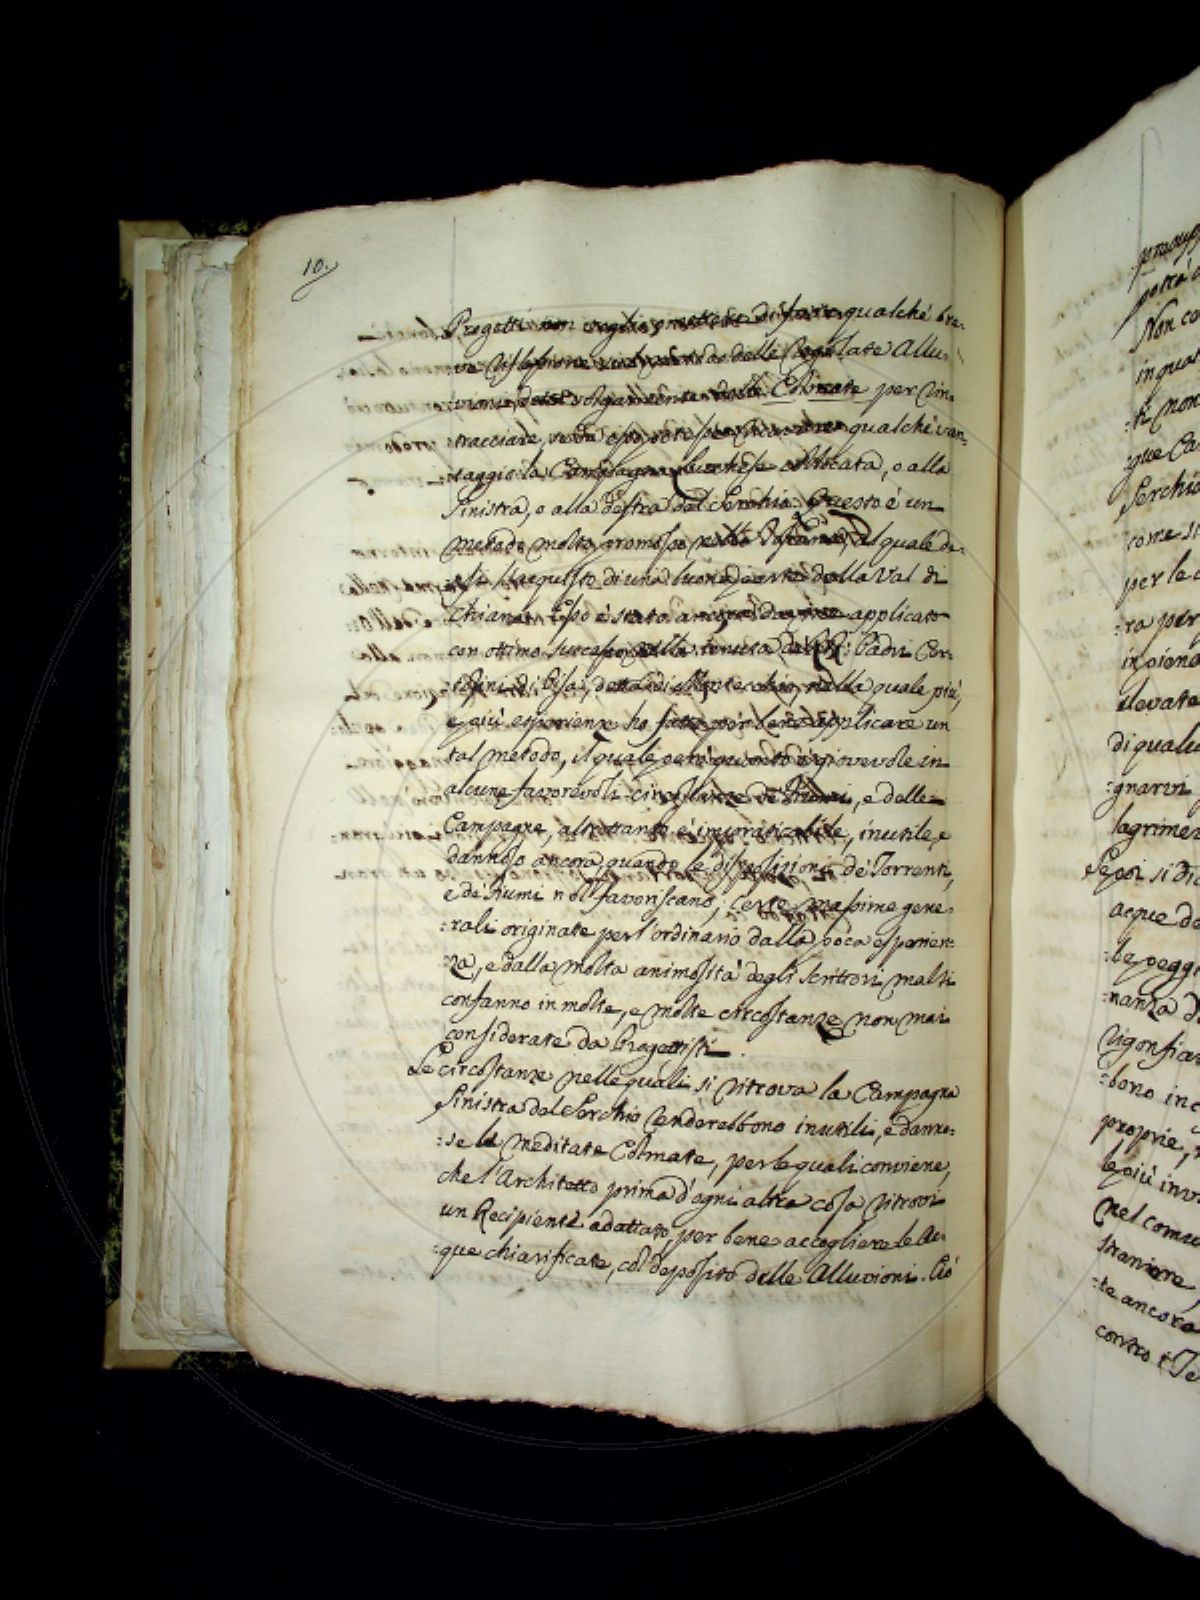 10.
Progetti non voglio omettere di fare qualche bre-
ve riflessione sul metodo delle regolate Allu-
vioni, dette volgarmente dalle Colmate per rin-
tracciare, se da esso potesse ricavare qualche van-
taggio la Campagna Lucchese collocata, o alla
sinistra, o alla destra del Serchio. Questo è un
metodo molto promosso nella Toscana, al quale de-
si l'acquisto di una buona parte della Val di
Chiana. Esso è stato ancora da me applicato
con ottimo successo nella tenuta de' RR: Padri Cer-
tosini di Pisa, detta di Montecchio, nella quale più,
e più esperienze ho fatto per bene applicare un
tal metodo, il quale però quanto è giovevole in
alcune favorevoli circostanze de' Fiumi, e delle
Campagne, altrettanto è impraticabile, inutile, e
dannoso ancora, quando le disposizioni de' Torrenti,
e de' Fiumi nol favoriscano; Certe massime gene-
:rali originate per l'ordinario dalla poca esperien-
za, e dalla molta animosità degli Scrittori mal si
confanno in molte, e molte circostanze non mai
considerate da Progettisti.
Le circostanze nelle quali si ritrova la Campagna
sinistra del Serchio renderebbono inutili, e danno-
:se le meditate Colmate, per le quali conviene,
che l'Architetto prima d'ogni altra cosa ritrovi
un Recipiente adattato, per bene accogliere le Ac-
:que chiarificate, col deposito delle Alluvioni. Ciò
potrà
Non co
in qua
:ti non
:que Ca
Serchio
come si
per le
:ra per
in pieno
elevate
di qualu
:gnarvi
lagrime
Se poi si di
acque d
:be peggi
:nanza d
rigonfia
:bono inc
proprie,
le più inv
nel comu
straniere,
:te ancora
contro i Te